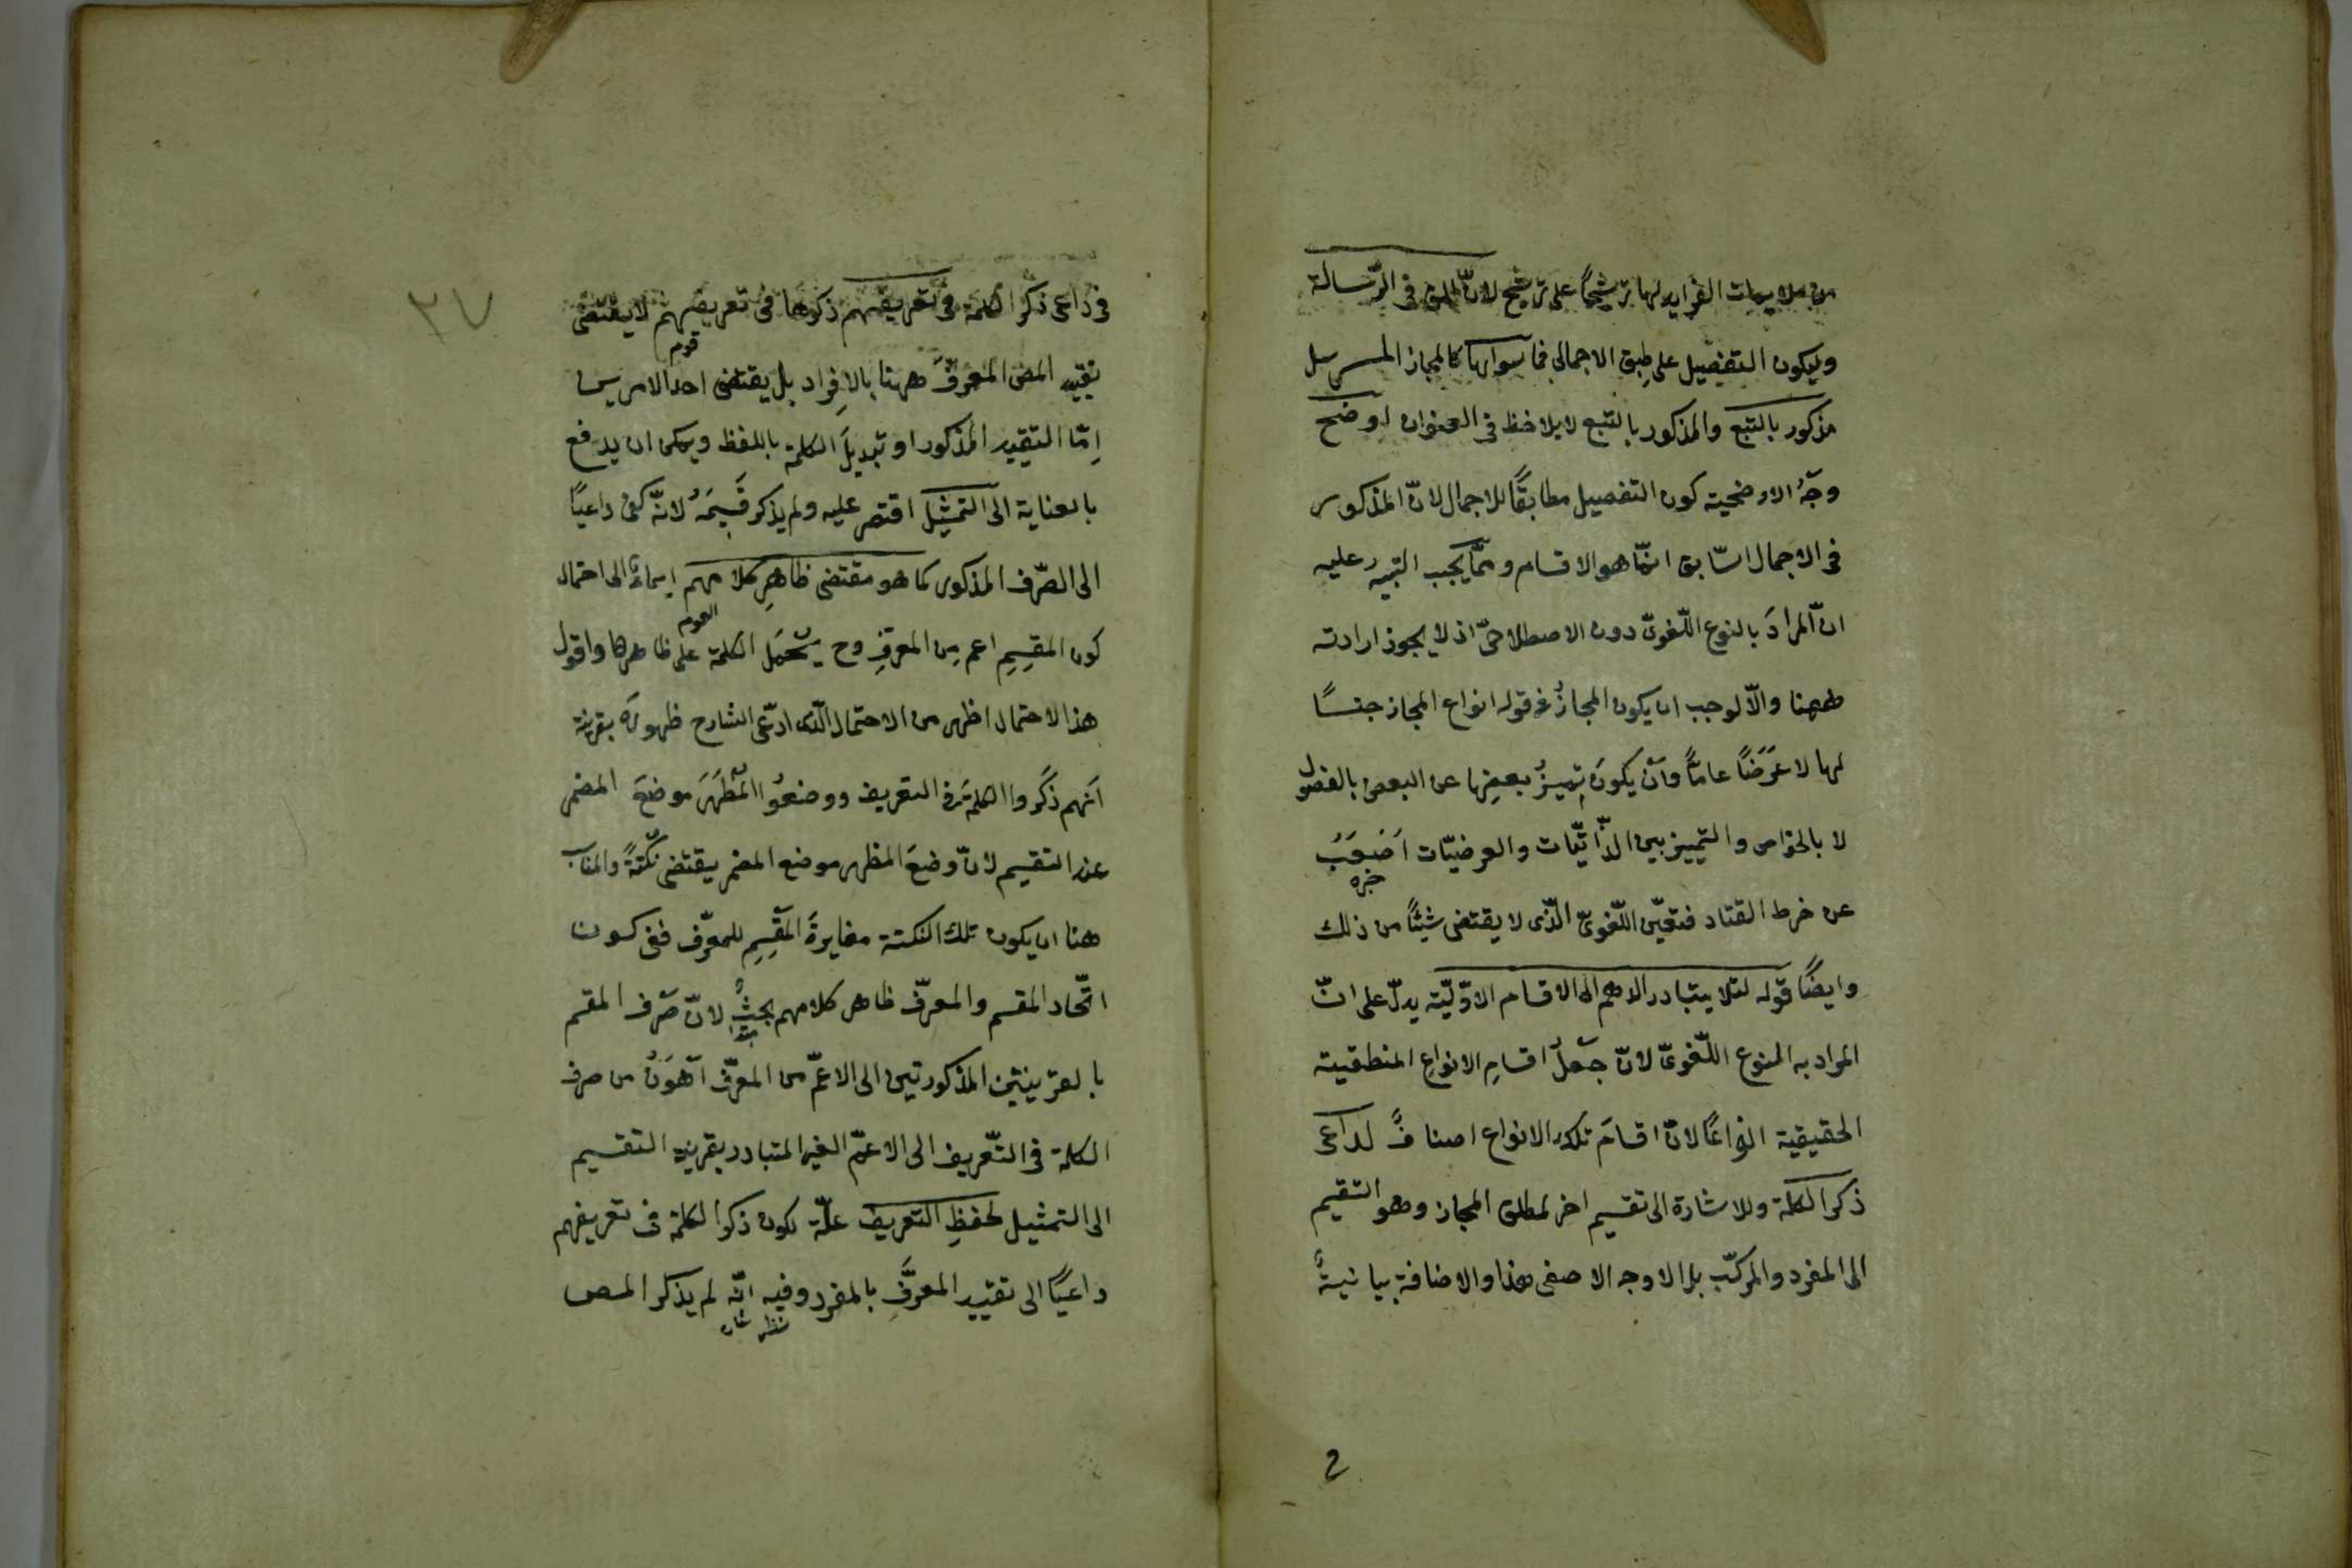 من ملايمات الفرايد لها ترشيحًا على ترشيح لانّ المطلق فى الرّسالة
وليكون التفصيل على طبق الاجمالى فما سواها كالمجاز المرسل
مذكور بالتبع والمذكور بالتبع لا يلاحظ فى العنوان اوضح
وجّهُ الاوضحية كون التفصيل مطابقًا للاجمال لانّ المذكور
فى الاجمال السّابق انّما هو الاقسام وممّا يجب التنبيه عليه
انّ المرادَ بالنوع اللّغوىّ دون الاصطلاحىّ اذ لا يجوز ارادته
ههنا والاّ لوجب ان يكون المجازُ فى قوله انواع المجاز جنسًا
لها لا عَرَضًا عامًّا وأن يكونَ تميزُ بعضِها عن البعض بالفصول
لا بالخواص والتمييز بين الذّاتيّات والعرضيّات اَصْعَبُ
خبره
عن خرط القتاد فتعيّن اللّغوىّ الّذى لا يقتضى شيئًا من ذلك
وايضًا قوله لئلا يتبادر الوهم الى الاقسام الاوّليّة يدلّ على انّ
المراد به النوع اللّغوىّ لانّ جَعْلَ اقسامِ الانواعِ المنطقية
الحقيقية انواعًا لانّ اقسامَ تلك الانواع اصنافٌ لداعى
ذكر الكلمة وللاشارة الى تقسيم اخر لمطلق المجاز وهو التقسيم
الى المفرد والمركّب بل الاوجه الاصفى هذا والاضافة بيانيةٌ
2
٢٧
فى داعى ذكر الكلمة فى تعريفهم ذكرها فى تعريفهم لا يقتضى
قوم
تقييد المعنى المعرَّفَ ههنا بالاِفراد بل يقتضى احد الامرين
اِمّا التقييد المذكور او تبديلَ الكلمة باللفظ ويمكن ان يدفع
بالعناية الى التمثيل اقتصر عليه ولم يذكر قَسِيمَهُ لانّه كفى داعيًا
الى الصّرف المذكور كما هو مقتضى ظاهرِ كلامهم ايماءً الى احتمال
العوم
كون المقسِمِ اعم من المعرفِ وح يُحْمَل الكلمة على ظاهرها واقول
هذا الاحتمال اظهر من الاحتمال الّذى ادّعى الشارح ظهورَه بقرينة
اَنهم ذكَروا الكلمةَ فى التعريف ووضعوُا المُظهَرَ موضعَ المضمر
عند التقسيم لانّ وضعَ المظهر موضع المضمر يقتضى نكْتةً والمناسب
هنا ان يكون تلك النكتة مغايرةَ المقسِمِ للمعرّف ففى كون
اتّحاد المقسم والمعرّف ظاهر كلامهم بحثٌ لانّ صَرف المقسم
بالقرينتين المذكورتين الى الاعمّ من المعرّف اَهْوَنُ من صرف
الكلمة فى التّعريف الى الاعمّ الغير المتبادر بقرينة التقسيم
الى التمثيل لحفظِ التعريف علّة لكون ذكر الكلمة فى تعريفهم
داعيًا الى تقييد المعرَّفِ بالمفرد وفيه انّه لم يذكر المص
نظر